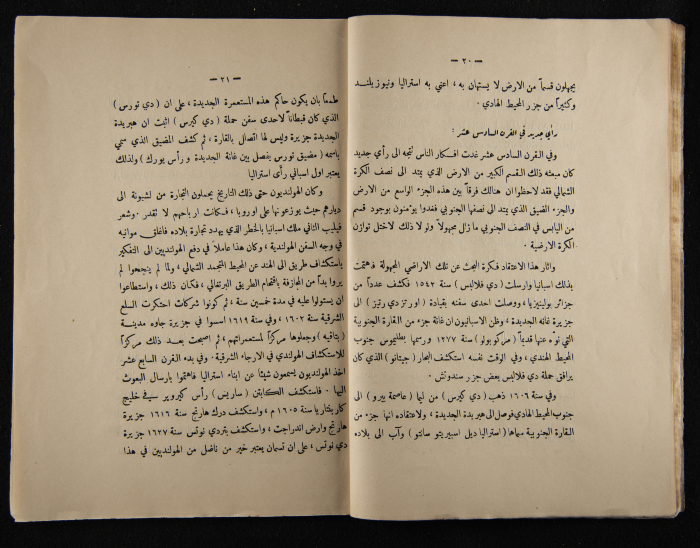 — ٢٠ —
يجهلون قسماً من الارض لا يستهان به، اعني به استراليا ونيوزيلند
وكثيراً من جزر المحيط الهادي.
رأي جديد في القرن السادس عشر:
وفي القرن السادس عشر غدت افكار الناس تتجه الى رأي جديد
كان مبعثه ذلك القسم الكبير من الارض الذي يمتد الى نصف الكرة
الشمالي فقد لاحظوا ان هنالك فرقاً بين هذه الجزء الواسع من الارض
والجزء الضيق الذي يمتد الى نصفها الجنوبي فغدوا يؤمنون بوجود قسم
من اليابس في النصف الجنوبي ما زال مجهولاً ولولا ذلك لاختل توازن
الكرة الارضية.
واثار هذا الاعتقاد فكرة البحث عن تلك الاراضي المجهولة فاهتمت
بذلك اسبانيا وارسلت (دي فلالبس) سنة ١٥٤٢ فكشف عدداً من
جزائر بولينيزيا، ووصلت احدى سفنه بقيادة (اورتز دي رتيز) الى
جزيرة غانه الجديدة، وظن الاسبانيون ان غانة جزء من القارة الجنوبية
التي نوّه عنها قديماً (مركوبولو) سنة ١٢٧٧ ورسمها بطليموس جنوب
المحيط الهندي، وفي الوقت نفسه استكشف البحار (جيتانو) الذي كان
يرافق حملة دي فلالبس بعض جزر سندوتش.
وفي سنة ١٦٠٦ ذهب (دي كيرس) من ليما (عاصمة بيرو) الى
جنوب المحيط الهادي فوصل الى هبريدة الجديدة، ولاعتقاده انها جزء من
القارة الجنوبية سماها (استراليا ديل اسبيريتو سانتو) وآب الى بلاده
— ٢١ —
طمعاً بان يكون حاكم هذه المستعمرة الجديدة، على ان (دي تورس)
الذي كان قبطاناً لاحدى سفن حملة (دي كيرس) اثبت ان هبريدة
الجديدة جزيرة وليس لها اتصال بالقارة، ثم كشف المضيق الذي سمي
باسمه (مضيق تورس يفصل بين غانة الجديدة ورأس يورك) ولذلك
يعتبر اول اسباني رأى استراليا
وكان الهولنديون حتى ذلك التاريخ يحملون التجارة من لشبونة الى
ديارهم حيث يوزعونها على اوروبا، فكانت ارباحهم لا تقدر. وشعر
فيليب الثاني ملك اسبانيا بالخطر الذي يهدد تجارة بلاده فاغلق موانيه
في وجه السفن الهولندية، وكان هذا عاملاً في دفع الهولنديين الى التفكير
باستكشاف طريق الى الهند عن المحيط المتجمد الشمالي، ولما لم ينجحوا لم
يروا بداً من المجازفة باقتحام الطريق البرتغالي، فكان ذلك، واستطاعوا
ان يستولوا عليه في مدة خمسين سنة، ثم كونوا شركات احتكرت السلع
الشرقية سنة ١٦٠٢، وفي سنة ١٦١٩ اسسوا في جزيرة جاوه مدينة
(بتافيه) وجعلوها مركزاً لمستعمراتهم، ثم اصبحت بعد ذلك مركزاً
للاستكشاف الهولندي في الارجاء الشرقية. وفي بدء القرن السابع عشر
اخذ الهولنديون يسمعون شيئاً عن ابناء استراليا فاهتموا بارسال البعوث
اليها. فاستكشف الكابتن (ساريس) رأس كيروير في خليج
كاربنتاريا سنة ١٦٠٥ م، واستكشف درك هارتج سنة ١٦١٦ جزيرة
هارتج وارض اندراجت، واستكشف بتردي نوتس سنة ١٦٢٧ جزيرة
دي نوتس، على ان تسمان يعتبر خير من ناضل من الهولنديين في هذا